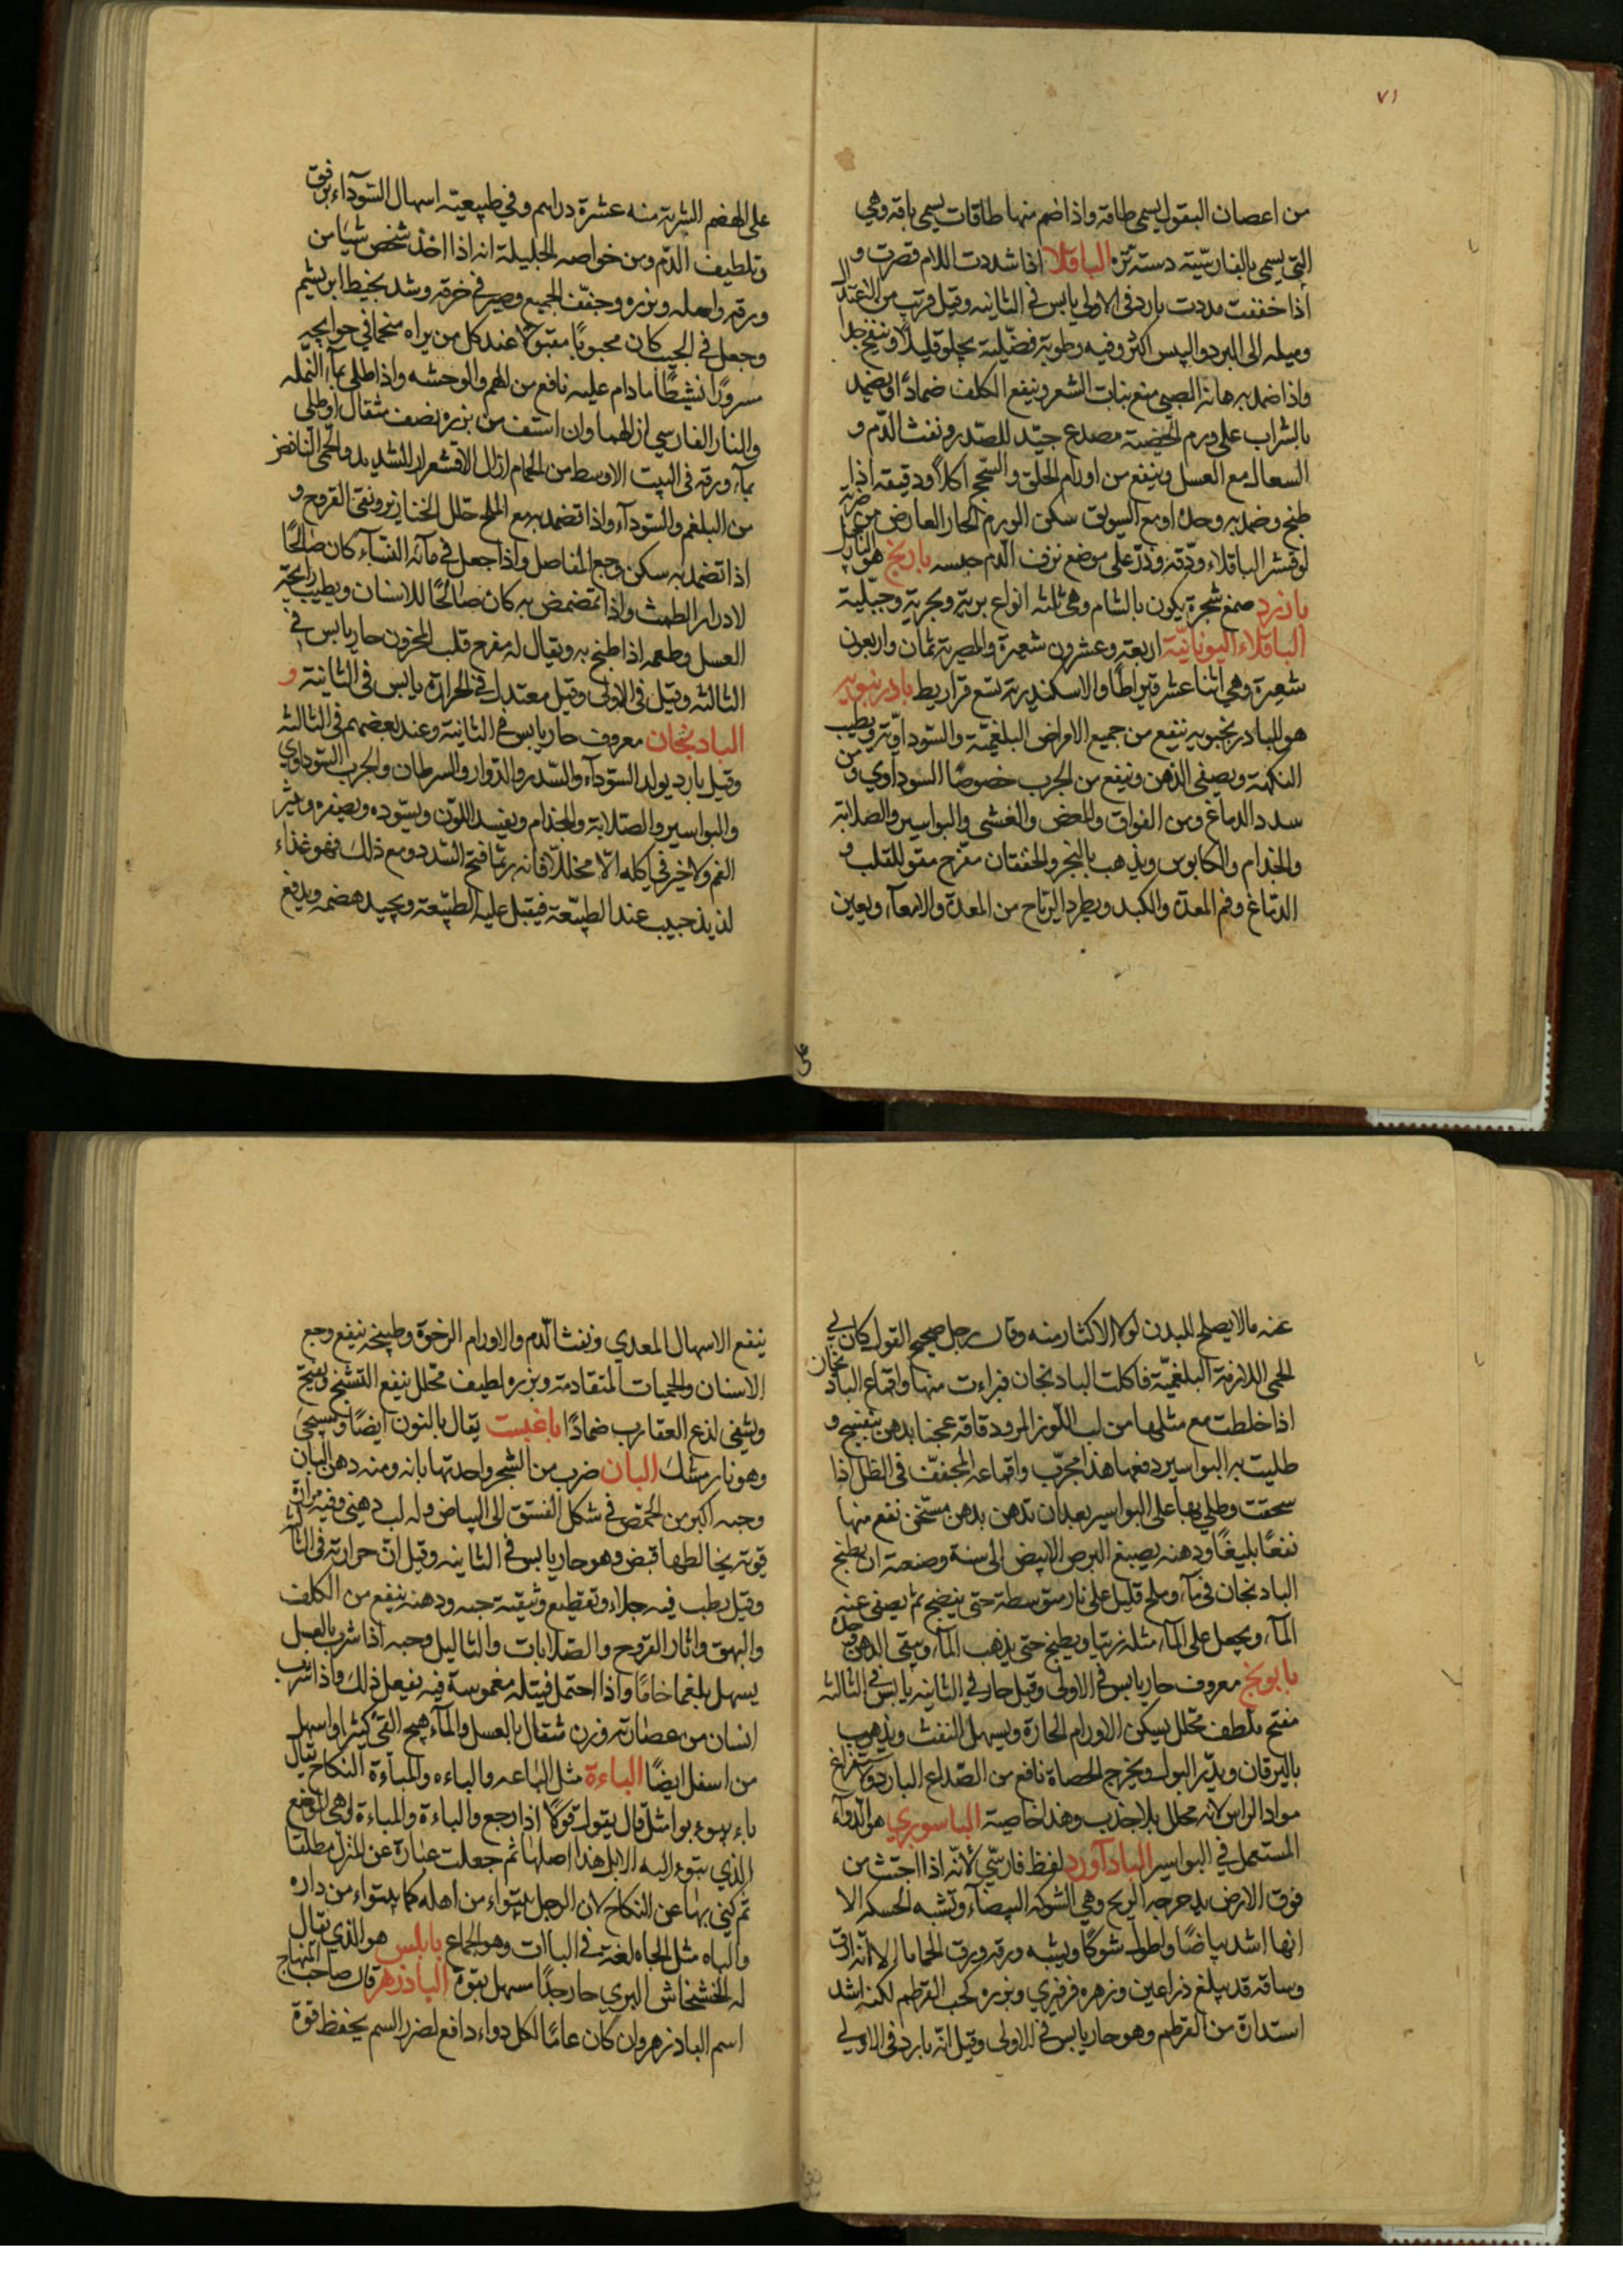 ٧١
من اعصان البقول يسمى طاقة واذا ضم منها طاقات يسمى باقة وهي
التي يسمى بالفارسيّة دسته تره الباقلا اذا شددت اللام قصرت و
اذا خففت مددت بارد فى الاولى يابس فى الثانيه وقيل قريب من الاعتدال
وميله الى البرد واليبس اكثر وفيه رطوبة فضليّة يجلو قليلا وينفخ جدا
واذا ضمد به عانة الصبي منع نبات الشعر وينفع الكلف ضمادًا ويضمد
بالشراب على ورم الخصية مصدع جيّد للصدر ونفث الدّم و
السعال مع العسل وينفع من اورام الحلق والسّحج اكلاً ودقيقه اذا
طبخ وضمد به وحده او مع السويق سكن الورم الحار العارض من ضربة
لو قشر الباقلاء ودّقه وذرّ على موضع نزف الدم حبسه بارنج هو النارجيل
بارزد صمغ شجرة يكون بالشام وهى ثلثه انواع برية وبحرية وجبّلية
الباقلاء اليونانيّة اربعة وعشرون شعيرة والمصرية ثمان واربعون
شعيرة وهي اثنا عشر قيراطًا والاسكندرية تسع قراريط بادرنبويه
هو البادرنجبويه ينفع من جميع الامراض البلغمية والسوداويّة ويطيب
النكهة ويصفى الذهن وينفع من الجرب خصوصًا السوداوي ومن
سدد الدماغ ومن الفواق والمغص والغشى والبواسير والصلابة
والجذام والكابوس ويذهب بالبخر والخفقان مفرّح مقو للقلب و
الدّماغ وفم المعدة والكبد ويطرد الرّياح من المعدة والامعآء ويعين
على الهضم الشربة منه عشرة دراهم وفي طبيعيّه اسهال السّودآء برفق
وتلطيف الدّم ومن خواصه الجليلة انه اذا اخذ شخص شيئا من
ورقه واصله وبزره وجفّف الجميع وصير في خرقة وشد بخيط ابريشم
وجعل فى الجيب كان محبوبًا مقبولا عند كل من يراه منجحا في حوايجه
مسرورًا نشيطًا مادام عليه نافع من الهم والوحشه واذا طلى بمآئه النّمله
والنار الفارسي ازالهما وان استف من بزره نصف مثقال او طلى
بمآء ورقه فى البيت الاوسط من الحمام ازال الاقشعرار الشديد والحمى النّافض
من البلغم والسّودآء واذا تضمد به مع الملح حلل الخنازير ونقى القروح و
اذا تضمد به سكن وجع المفاصل واذا جعل فى مآئه النسآء كان صالحًا
لادرار الطمث واذا تمضمض به كان صالحًا للاسنان ويطيب رايحة
العسل وطعمه اذا طبخ به ويقال له مفرح قلب المحزون حار يابس فى
الثالثه وقيل فى الاولى وقيل معتدل فى الحرارة يابس فى الثانية و
البادنجان معروف حار يابس فى الثانية وعند بعضهم فى الثالثه
وقيل بارد يولد السّودآء والسّدد والدّوار والسرطان والجرب السّوداوي
والبواسير والصّلابة والجذام ويفسد اللّون ويسّوده ويصفره ويبثر
الفم ولا خير فى اكله الّا مخللا فانه ربّما فتح السّدد ومع ذلك فهو غذاء
لذيذ حبيب عند الطبيّعة فيقبل عليه الطبيّعة ويجيد هضمه ويدفع
عنه مالا يصلح للبدن لولا الاكثار منه وقال رجل صحيح القول كان لى
الحمى اللازمة البلغميّة فاكلت البادنجان فبراءت منها واقماع البادنجان
اذا خلطت مع مثلها من لب اللّوز المر ودقاقه عجنا بدهن بنفسج و
طليت به البواسير دفعها هذا مجرّب واقماعه المجفّفه فى الظل اذا
سحقت وطلي بها على البواسير بعد ان تدهن بدهن مسخن نفع منها
نفعًا بليغًا ودهنه يصبغ البرص الابيض الى سنة وصنعة ان يطبخ
البادنجان فى مآء وملح قليل على نار متوسطة حتى ينضج ثم يصفى عنه
المآء ويجعل على المآء مثله زيتا ويطبخ حتى يذهب المآء ويبقى الدهن وحده
بابونج معروف حار يابس فى الاولى وقيل حار فى الثانيه يابس فى الثالثه
مفتح ملطف محلل يسكن الاورام الحارة ويسهل النفث ويذهب
باليرقان ويدّر البول ويخرج الحصاة نافع من الصّداع البارد واستفراغ
مواد الراس لانه محلل بلا جذب وهذا خاصية الباسوري هو الدّوآء
المستعمل فى البواسير الباداورد لفظ فارسّي لانّه اذا اجتثت من
فوق الارض يدحرجه الريح وهي الشوكه البيضآء وتشبه الحسكه الا
انها اشد بياضًا واطول شوكًا ويشبه ورقه ورق الخامالا لا انّه ارق
وساقه قد يبلغ ذراعين وزهره فرفيري وبزره كحب القرطم لكنه اشد
استدارة من القرطم وهو حار يابس فى الاولى وقيل انّه بارد فى الاولي
ينفع الاسهال المعدي ونفث الدّم والاورام الرخوة وطبيخه ينفع وجع
الاسنان والحميات المتقادمة وبزره لطيف محّلل ينفع التشنج ويفتح
ويشفى لذع العقارب ضمادًا باغبست يقال بالنون ايضًا ويسمى
وهو نارمشك البان ضرب من الشجر واحدتها بانه ومنه دهن البان
وحبه اكبر من الحمّص فى شكل الفستق الى البياض وله لب دهني وفيه مرارة
قويّة يخالطها قبض وهو حار يابس فى الثانيه وقيل انّ حرارته فى الثالثة
وقيل رطب فيه جلاء وتقطيع وتنقية حبه ودهنه ينفع من الكلف
والبهق واثار القرّوح والصّلابات والثاليل وحبه اذا شرب بالعسل
يسهل بلغما خامًا واذا احتمل فتيلة مغموسة فيه يفعل ذلك واذا شرب
انسان من عصارته وزن مثقال بالعسل والمآء هيج القئ كثيرا واسهل
من اسفل ايضًا الباءة مثل الباعه والباءه والمبأءة النكاح يقال
باء يبوء بوا مثل قال يقول قولًا اذا رجع والباءة والمباءة وهي الموضع
الذي يتبوء اليه الابل هذا اصلها ثم جعلت عبارة عن المنزل مطلقا
ثم كنى بها عن النكاح لان الرجل يتبواء من اهله كما يتبواء من داره
والباه مثل الجاه لغة فى البآات وهو الجماع بابلس هو الذي يقال
له الخشخاش البري حار جدًا مسهل بقوة البادزهر قال صاحب المنهاج
اسم البادزهر وان كان عامًا لكل دواء دافع لضرر السم يحفظ قوة